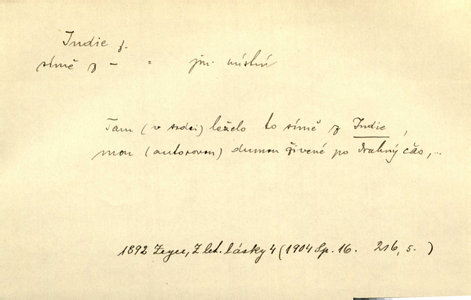 Indie f.
símě z – " jm. místní
Tam (v srdci) leželo to símě z Indie,
mou (autorovou) dumou živené po drahný čas,..
1892 Zeyer, Z let. lásky 4 (1904 Sp. 16. 216, s. )